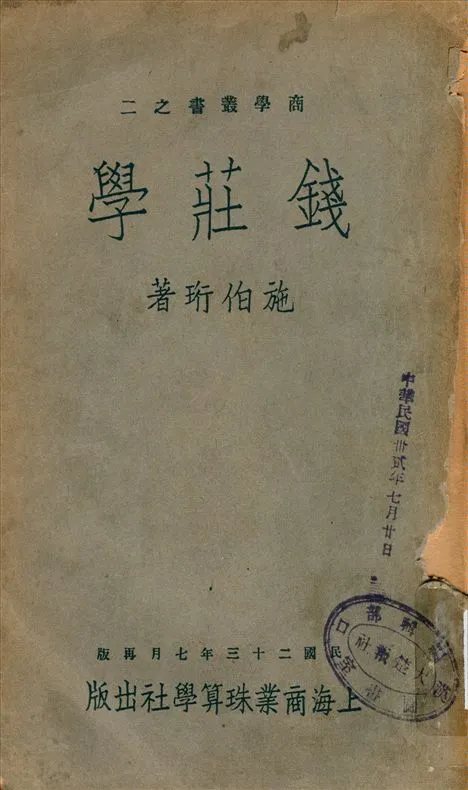 商學叢書之二
錢莊學
施伯珩著
中華民國卅貳年七月廿日
民國二十三年七月再版
上海商業珠算學社出版
大楚報社